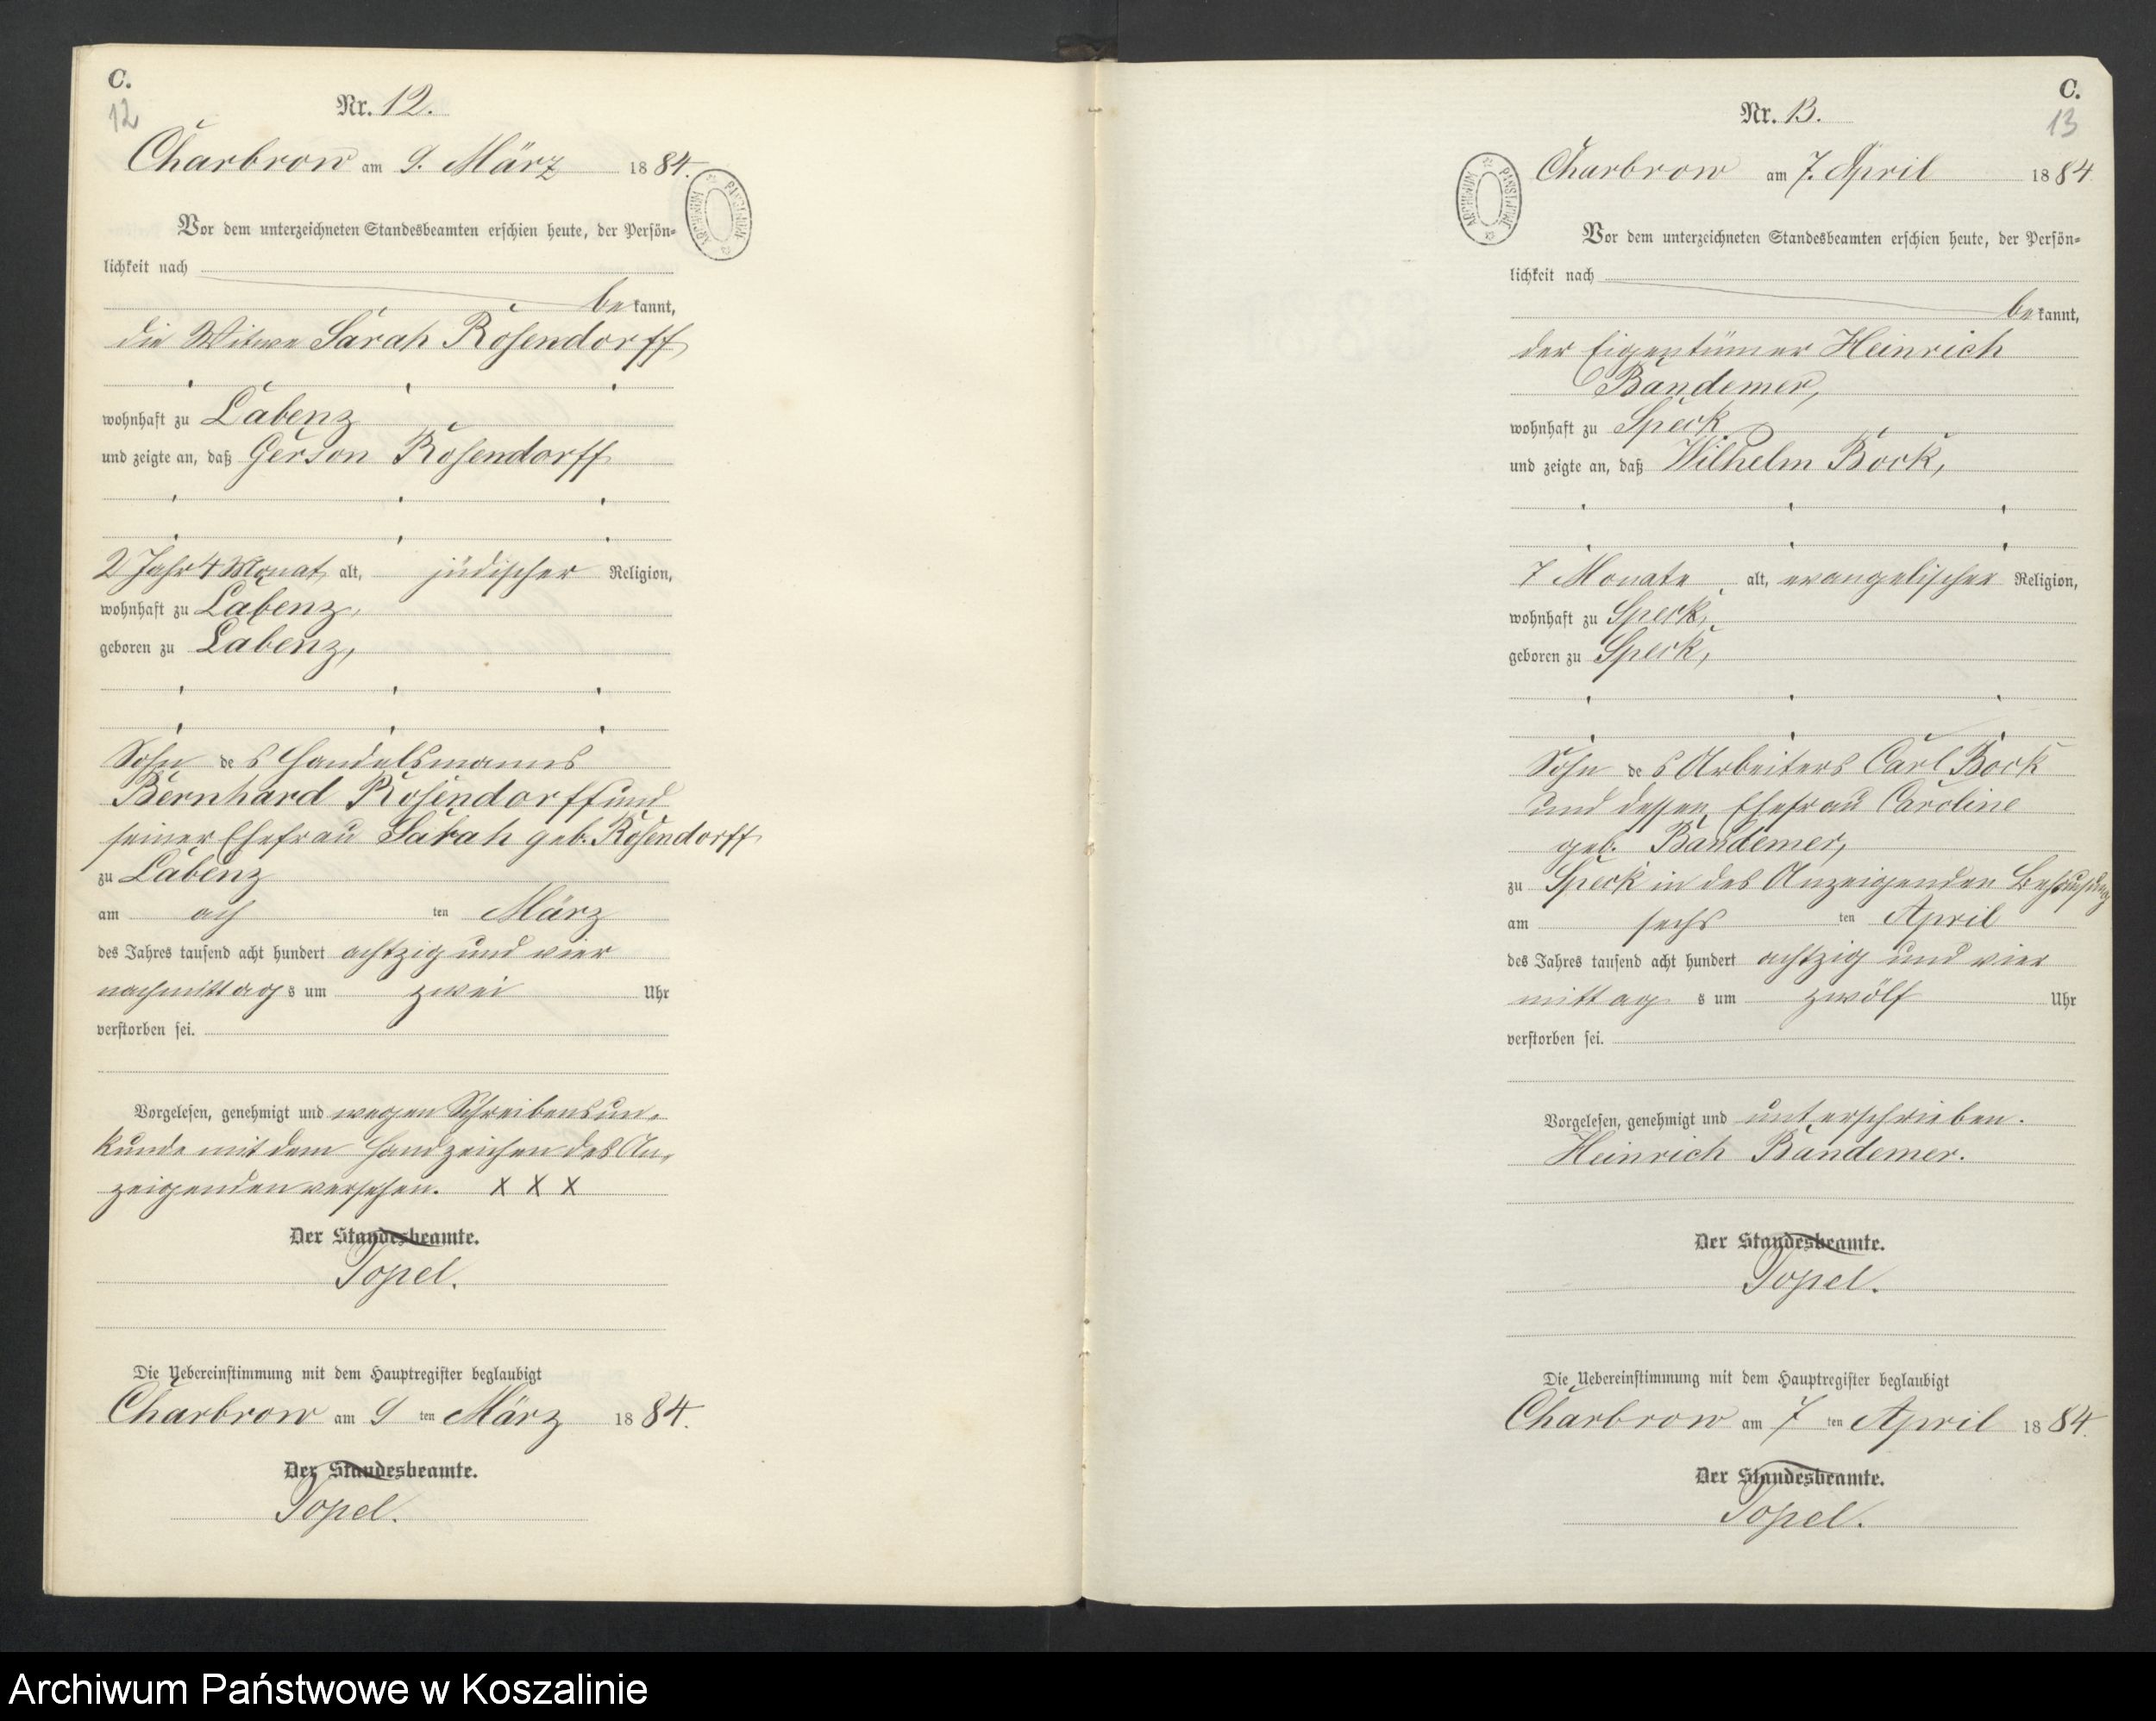 C.
12
Nr. 12.
Charbrow am 9. März 1884.
ARCHIWUM PAŃSTWOWE
Vor dem unterzeichneten Standesbeamten erschien heute, der Persön-
lichkeit nach
bekannt,
die Witwe Sarah Rosendorff
wohnhaft zu Labenz
und zeigte an, daß Gerson Rosendorff
2 Jahr 4 Monat alt, jüdischer Religion,
wohnhaft zu Labenz,
geboren zu Labenz,
Sohn des Handelsmanns
Bernhard Rosendorff und
seiner Ehefrau Sarah geb. Rosendorff
zu Labenz
am ach ten März
des Jahres tausend acht hundert achtzig und vier
nachmittags um zwei Uhr
verstorben sei.
Vorgelesen, genehmigt und wegen Schreibensun-
kunde mit dem Handzeichen des An-
zeigenden versehen. X X X
Der Standesbeamte.
Topel.
Die Uebereinstimmung mit dem Hauptregister beglaubigt
Charbrow am 9 ten März 1884.
Der Standesbeamte.
Topel.
C.
13
Nr. 13.
Charbrow am 7. April 1884
ARCHIWUM PAŃSTWOWE
Vor dem unterzeichneten Standesbeamten erschien heute, der Persön-
lichkeit nach
bekannt,
der Eigentümer Heinrich
Bandemer,
wohnhaft zu Speck
und zeigte an, daß Wilhelm Bock,
7 Monate alt, evangelischer Religion,
wohnhaft zu Speck,
geboren zu Speck,
Sohn des Arbeiters Carl Bock
und dessen Ehefrau Caroline
geb. Bandemer,
zu Speck in des Anzeigenden Behausung
am sechs ten April
des Jahres tausend acht hundert achtzig und vier
mittags um zwölf Uhr
verstorben sei.
Vorgelesen, genehmigt und unterschrieben.
Heinrich Bandemer.
Der Standesbeamte.
Topel.
Die Uebereinstimmung mit dem Hauptregister beglaubigt
Charbrow am 7 ten April 1884.
Der Standesbeamte.
Topel.
Archiwum Państwowe w Koszalinie